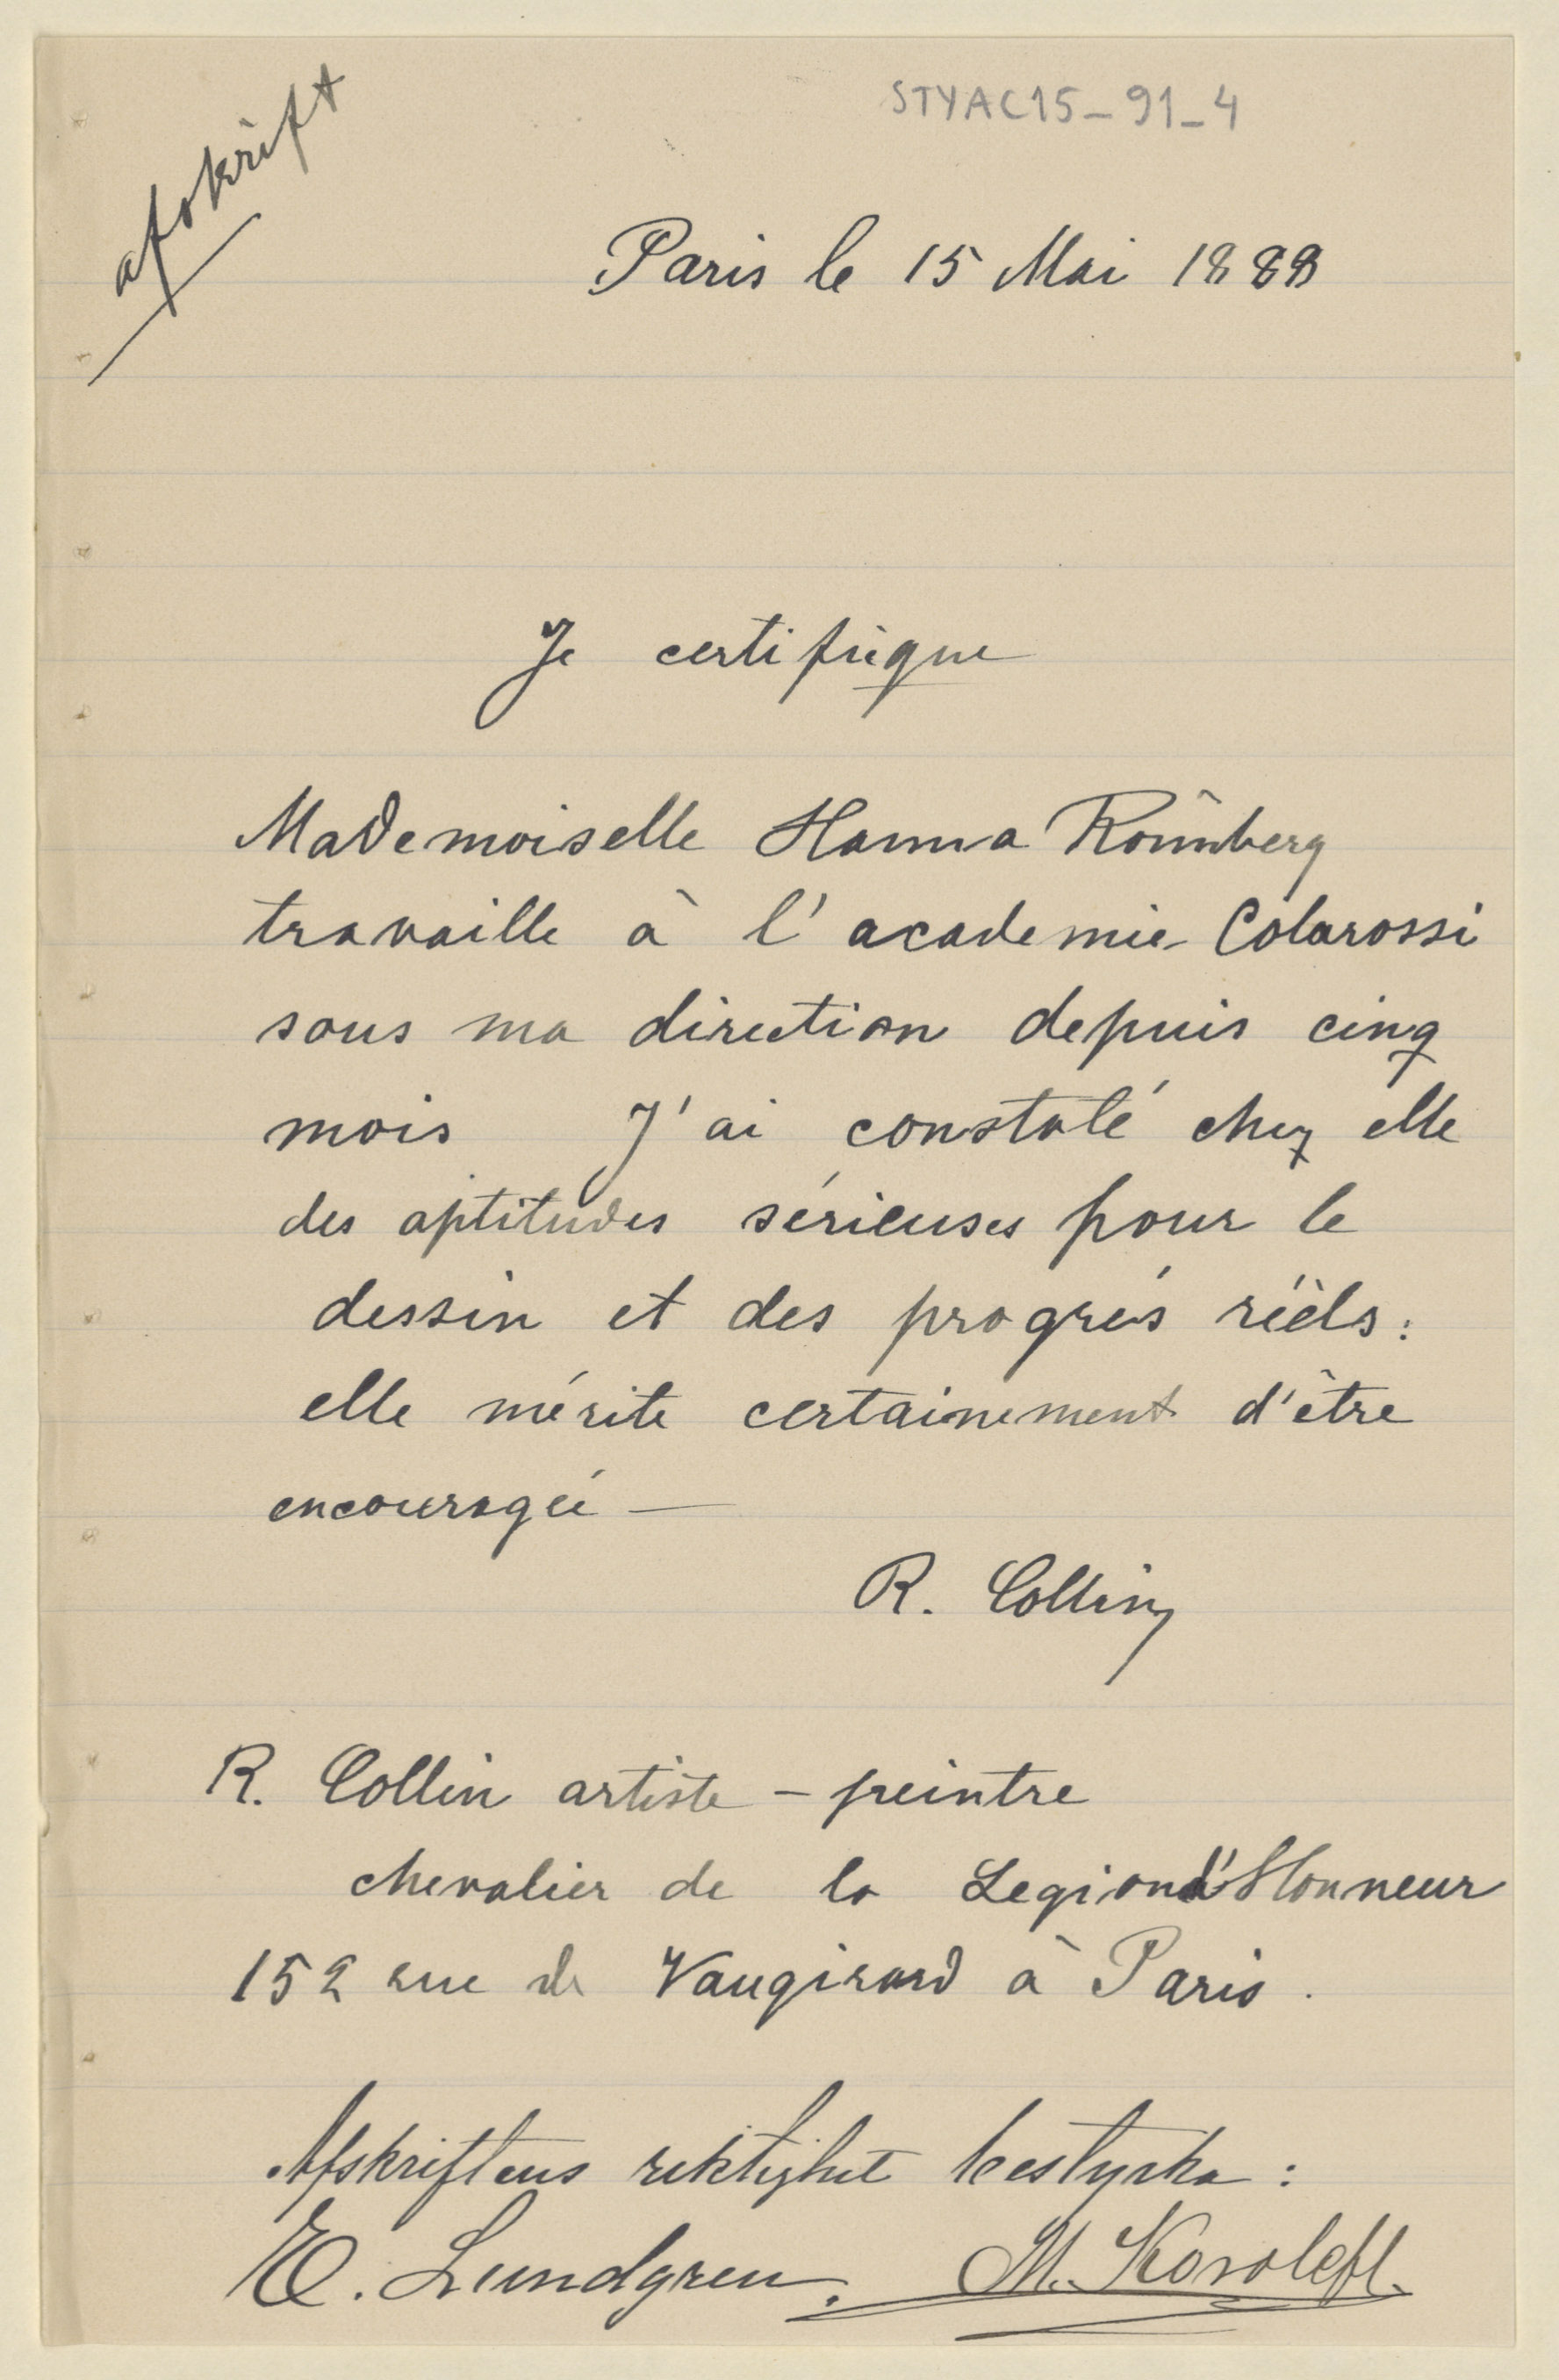 afskrift
STYAC15-91-4
Paris le 15 Mai 1888
Je certifie que
Mademoiselle Hanna Rönnberg
travaille à l'academie Colarossi
sous ma direction depuis cinq
mois J'ai constaté chez elle
des aptitudes sérieuses pour le
dessin et des progrés réèls:
elle mérite certainement d'être
encouragée —
R. Collin
R. Collin artiste - peintre
chevalier de la Legion d'Honneur
152 rue de Vaugirard à Paris.
Afskriftens riktighet bestyrka:
E. Lundgren. M. Koroleff.